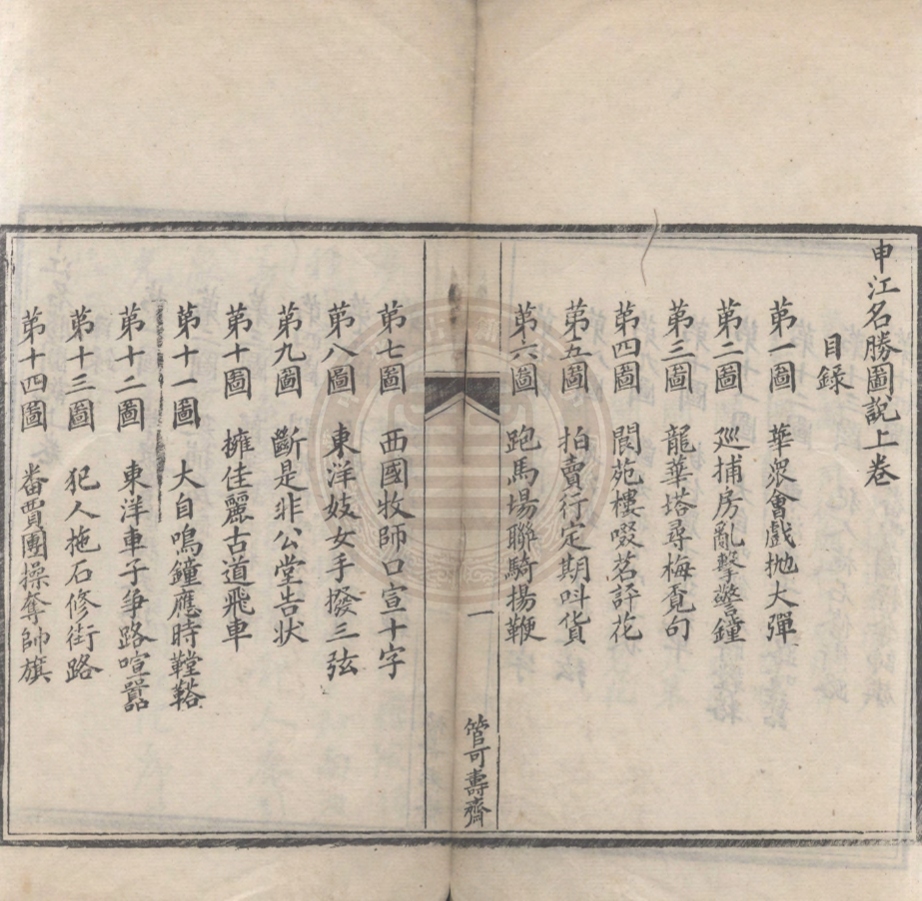 申江名勝圖說上卷
目錄
第一圖 華眾會戲拋大彈
第二圖 巡捕房亂擊警鐘
第三圖 龍華塔尋梅覓句
第四圖 閬苑樓啜茗評花
第五圖 拍賣行定期呌貨
第六圖 跑馬場聯騎揚鞭
一
管可壽齋
第七圖 西國牧師口宣十字
第八圖 東洋妓女手撥三弦
第九圖 斷是非公堂告状
第十圖 擁佳麗古道飛車
第十一圖 大自鳴鐘應時鞺鞳
第十二圖 東洋車子爭路喧囂
第十三圖 犯人拖石修街路
第十四圖 番賈團操奪帥旗